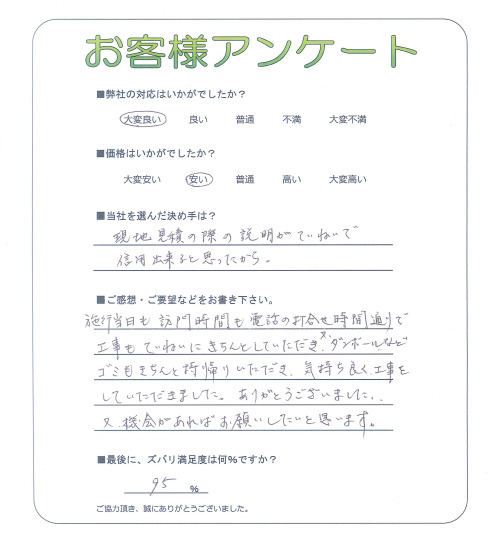 お客様アンケート
■弊社の対応はいかがでしたか？
大変良い 良い 普通 不満 大変不満
■価格はいかがでしたか？
大変安い 安い 普通 高い 大変高い
■当社を選んだ決め手は？
現地見積の際の説明がていねいで
信用出来ると思ったから。
■ご感想・ご要望などをお書き下さい。
施行当日も訪門時間も電話の打合せ時間通りで
工事もていねいにきちんとしていただき、又、ダンボールなど
ゴミもきちんと持帰りいただき、気持ち良く工事を
していただきました。ありがとうございました．．
又、機会があればお願いしたいと思います。
■最後に、ズバリ満足度は何%ですか？
95 %
ご協力頂き、誠にありがとうございました。